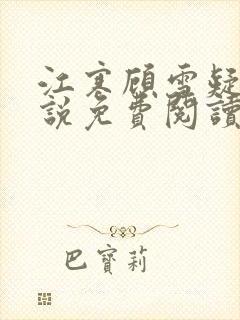 江寒顧雪疑
說免費閱讀
巴寶莉